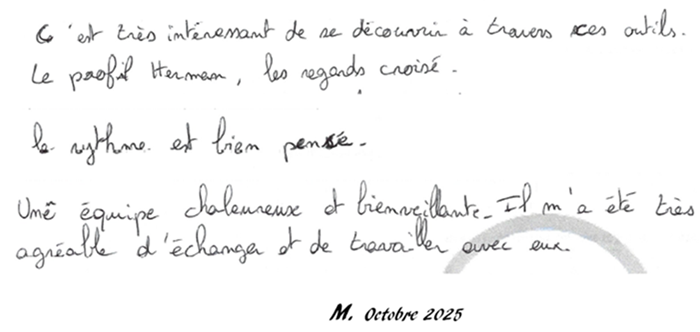 C'est très intéressant de se découvrir à travers ces outils.
Le profil Herman, les regards croisé.
le rythme est bien pensé.
Une équipe chaleureuse et bienveillante. Il m'a été très
agréable d'échanger et de travailler avec eux.
M. Octobre 2025